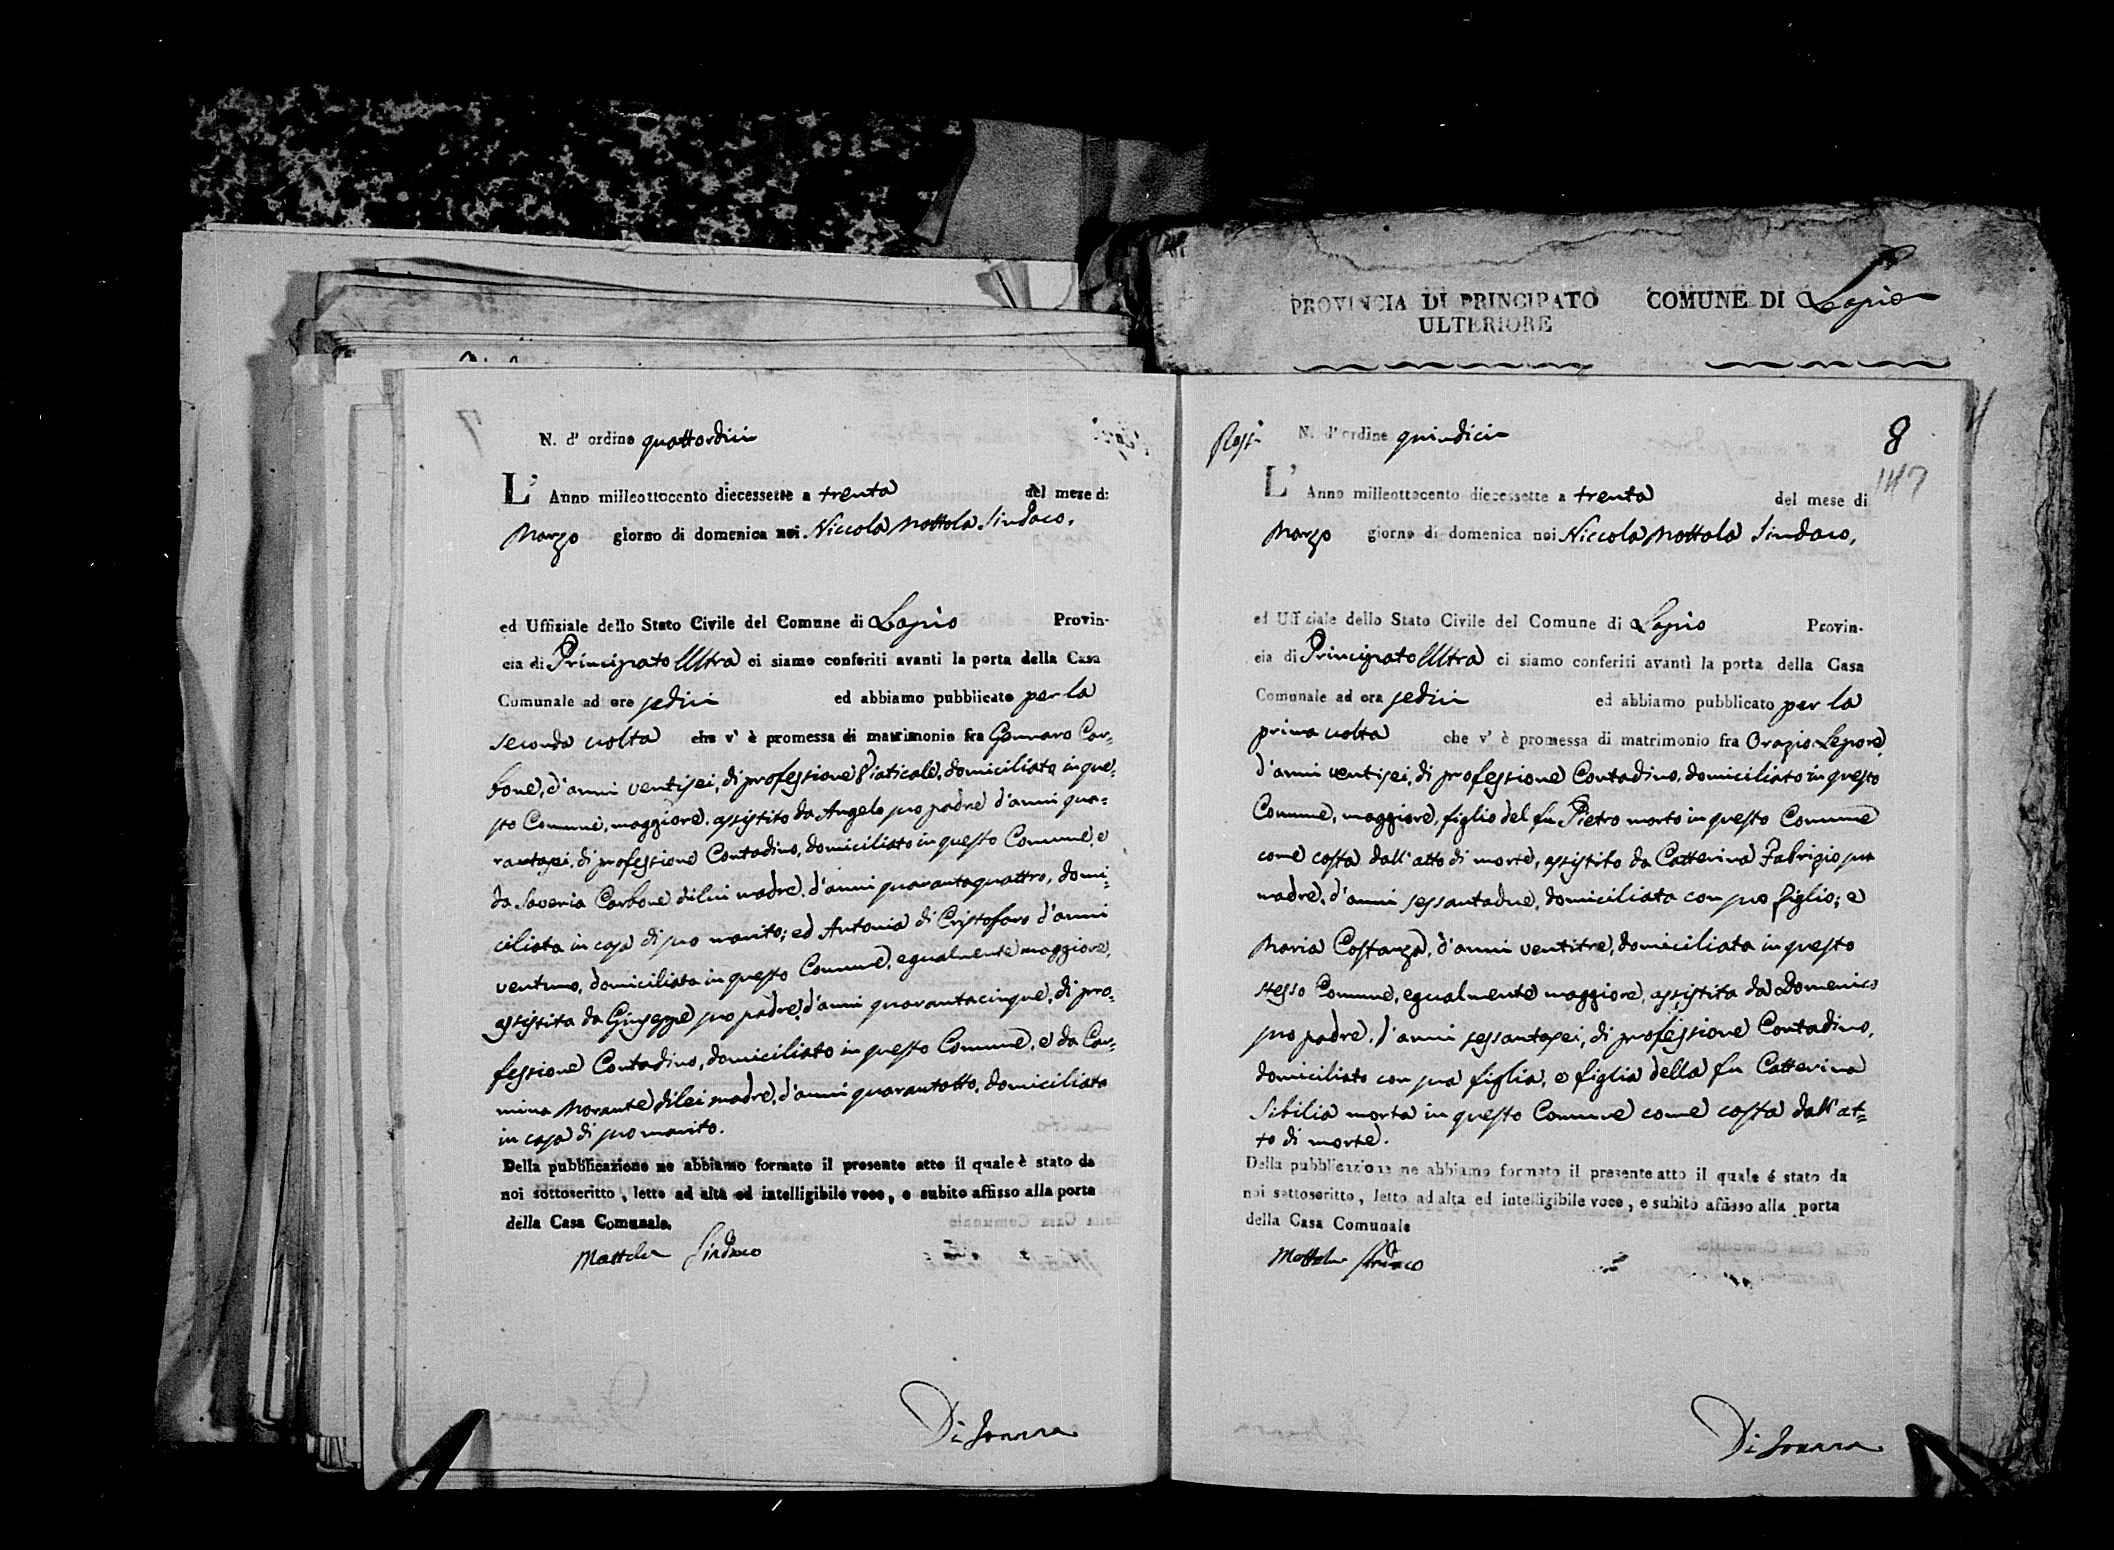 PROVINCIA DI PRINCIPATO
ULTERIORE
COMUNE DI Lapio
N. d' ordine quattordici
L' Anno milleottocento diecessette a trenta del mese di
Marzo giorno di domenica noi Niccola Mottola Sindaco,
ed Uffiziale dello Stato Civile del Comune di Lapio Provin-
cia di Principato Ultra ci siamo conferiti avanti la porta della Casa
Comunale ad ore sedici ed abbiamo pubblicato per la
seconda volta che v' è promessa di matrimonio fra Gennaro Car-
bone, d'anni ventisei, di professione Viaticale, domiciliato in que-
sto Comune, maggiore, assistito da Angelo suo padre d'anni qua-
rantasei, di professione Contadino, domiciliato in questo Comune, e
da Saveria Carbone di lui madre, d'anni quarantaquattro, domi-
ciliata in casa di suo marito; ed Antonia di Cristofaro d'anni
ventuno, domiciliata in questo Comune, egualmente maggiore,
assistita da Giuseppe suo padre, d'anni quarantacinque, di pro-
fessione Contadino, domiciliato in questo Comune, e da Car-
mina Morante di lei madre, d'anni quarantotto, domiciliata
in casa di suo marito.
Della pubblicazione ne abbiamo formato il presente atto il quale è stato da
noi sottoscritto, letto ad alta ed intelligibile voce, e subito affisso alla porta
della Casa Comunale.
Mottola Sindaco
N. d' ordine quindici
8
147
L' Anno milleottocento diecessette a trenta del mese di
Marzo giorno di domenica noi Niccola Mottola Sindaco,
ed Uffiziale dello Stato Civile del Comune di Lapio Provin-
cia di Principato Ultra ci siamo conferiti avanti la porta della Casa
Comunale ad ora sedici ed abbiamo pubblicato per la
prima volta che v' è promessa di matrimonio fra Orazio Lepore,
d'anni ventisei, di professione Contadino, domiciliato in questo
Comune, maggiore, figlio del fu Pietro morto in questo Comune
come costa dall'atto di morte, assistito da Catterina Fabrizio sua
madre, d'anni sessantadue, domiciliata con suo figlio; e
Maria Costanza, d'anni ventitre, domiciliata in questo
stesso Comune, egualmente maggiore, assistita da Domenico
suo padre, d'anni sessantasei, di professione Contadino,
domiciliato con sua figlia, e figlia della fu Catterina
Sibilia morta in questo Comune come costa dall'at-
to di morte.
Della pubblicazione ne abbiamo formato il presente atto il quale é stato da
noi sottoscritto, letto ad alta ed intelligibile voce, e subito affisso alla porta
della Casa Comunale
Mottola Sindaco